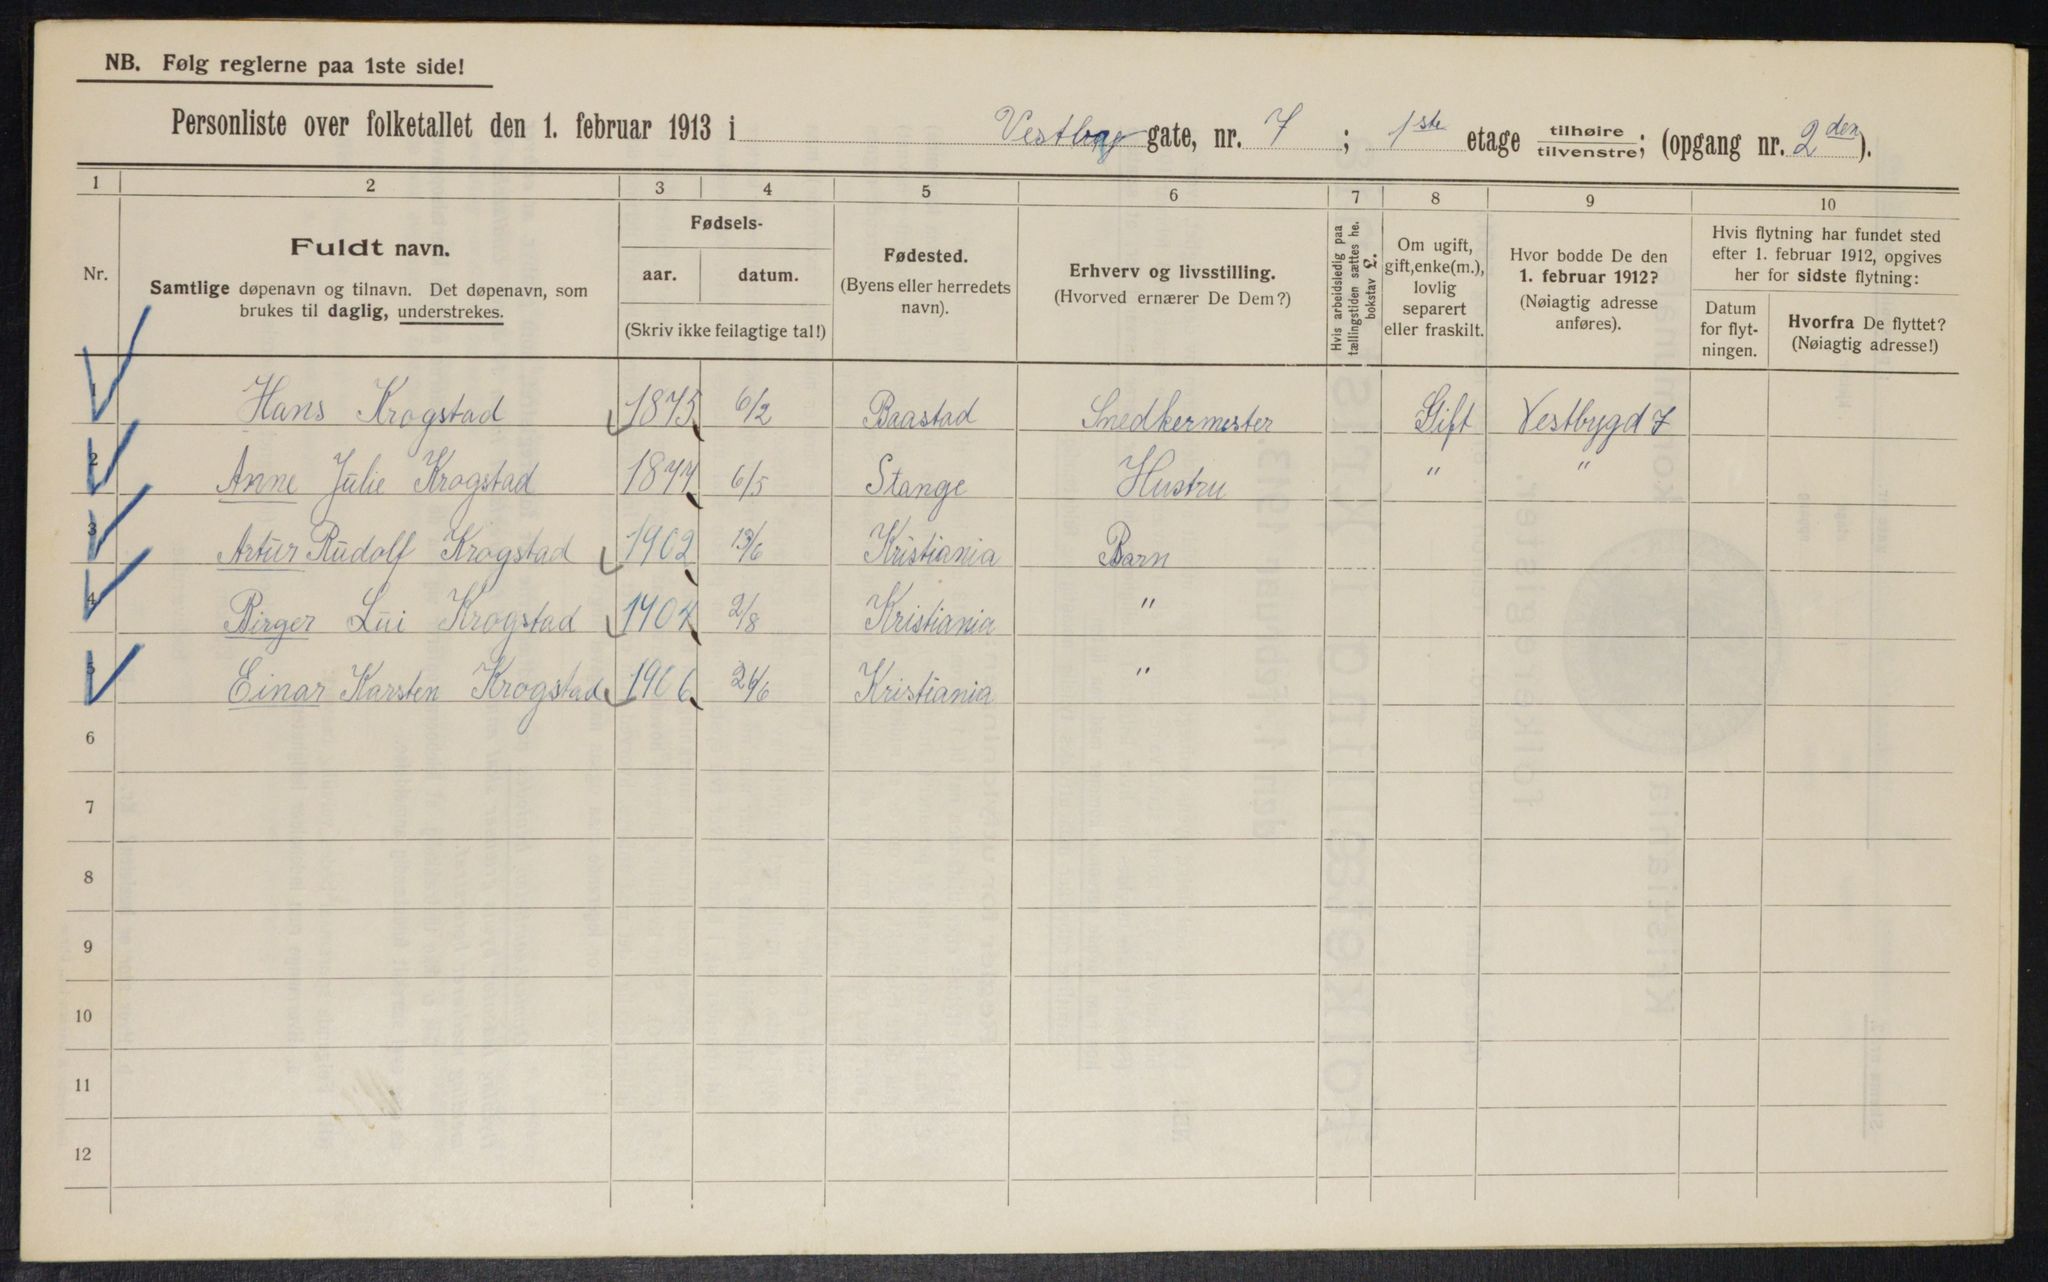 NB. Følg reglerne paa 1ste side!
Personliste over folketallet den 1. februar 1913 i Vestbygd gate, nr. 7 ; 1ste etage tilhøire / tilvenstre; (opgang nr. 2den).
1 2 3 4 5 6 7 8 9 10
Nr.
Fuldt navn.
Samtlige døpenavn og tilnavn. Det døpenavn, som
brukes til daglig, understrekes.
Fødsels-
aar. datum.
(Skriv ikke feilagtige tal!)
Fødested.
(Byens eller herredets
navn).
Erhverv og livsstilling.
(Hvorved ernærer De Dem?)
Hvis arbeidsledig paa
tællingstiden sættes he.
bokstav L.
Om ugift,
gift, enke(m.),
lovlig
separert
eller fraskilt.
Hvor bodde De den
1. februar 1912?
(Nøiagtig adresse
anføres).
Hvis flytning har fundet sted
efter 1. februar 1912, opgives
her for sidste flytning:
Datum
for flyt-
ningen.
Hvorfra De flyttet?
(Nøiagtig adresse!)
1 Hans Krogstad 1875 6/2 Baastad Snedkermester Gift Vestbygd 7
2 Anne Julie Krogstad 1877 6/5 Stange Hustru " "
3 Artur Rudolf Krogstad 1902 13/6 Kristiania Barn
4 Birger Lui Krogstad 1904 2/8 Kristiania "
5 Einar Karsten Krogstad 1906 Kristiania "
6
7
8
9
10
11
12